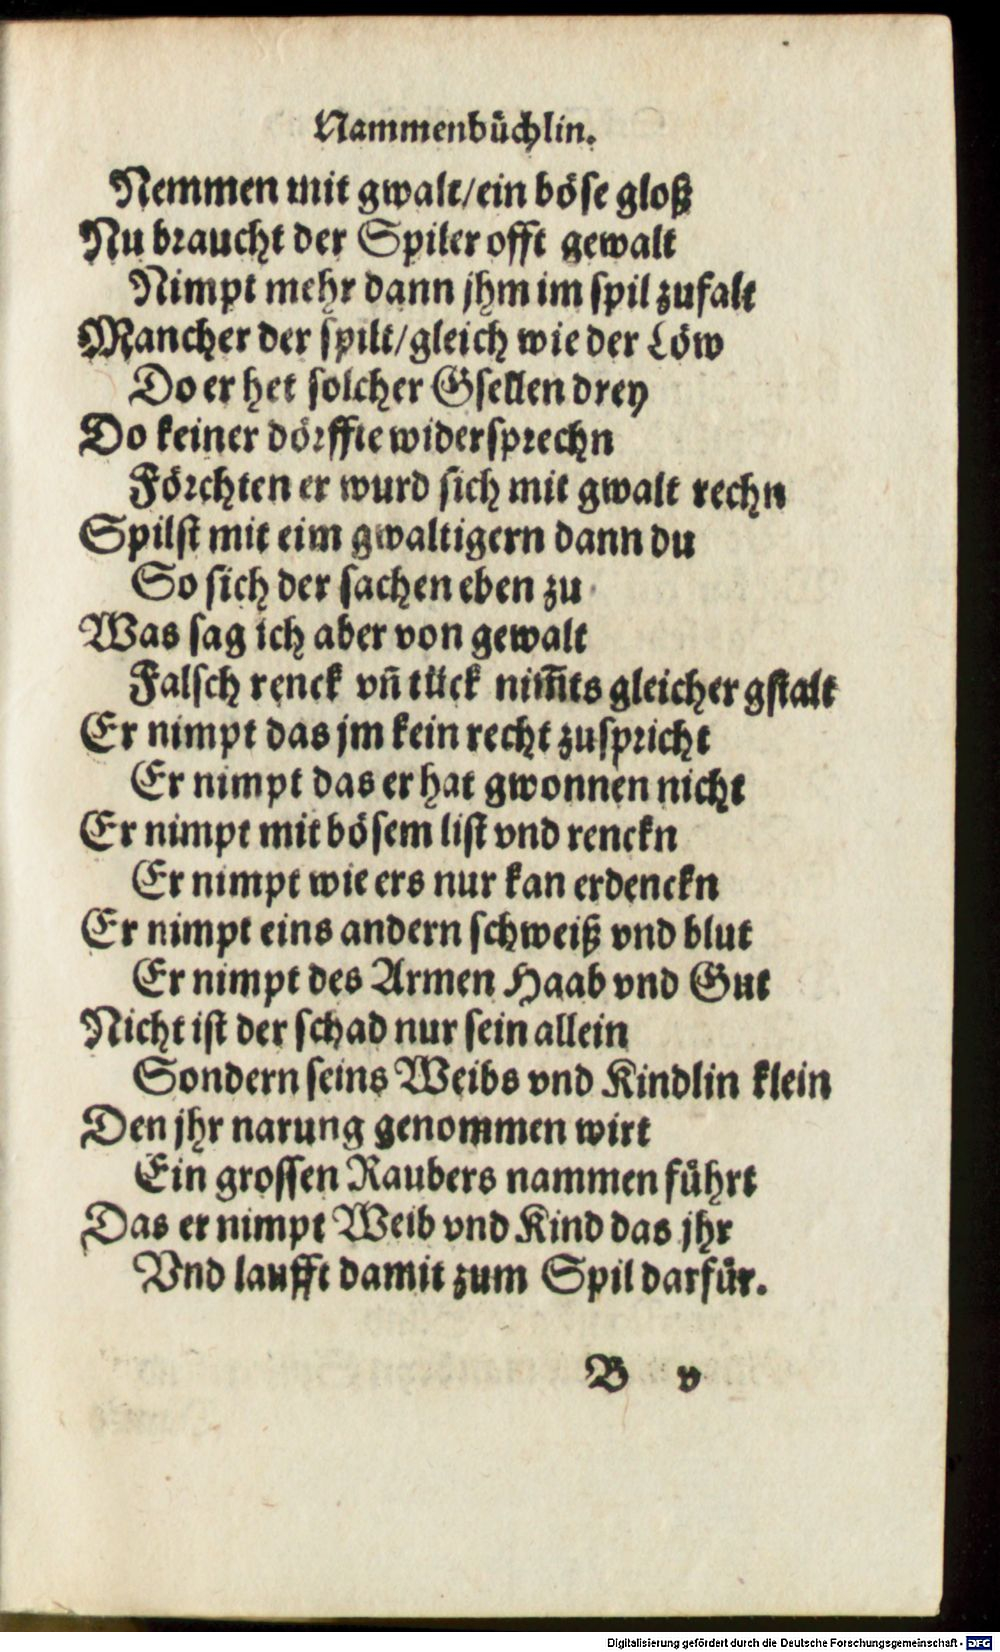 Nammenbüchlin.
Nemmen mit gwalt/ein böse gloß
Nu braucht der Spiler offt gewalt
Nimpt mehr dann jhm im spil zufalt
Mancher der spilt/gleich wie der Löw
Do er het solcher Gsellen drey
Do keiner dörffte widersprechn
Förchten er wurd sich mit gwalt rechn
Spilst mit eim gwaltigern dann du
So sich der sachen eben zu
Was sag ich aber von gewalt
Falsch renck vñ tück nim̃ts gleicher gstalt
Er nimpt das jm kein recht zuspricht
Er nimpt das er hat gwonnen nicht
Er nimpt mit bösem list vnd renckn
Er nimpt wie ers nur kan erdenckn
Er nimpt eins andern schweiß vnd blut
Er nimpt des Armen Haab vnd Gut
Nicht ist der schad nur sein allein
Sondern seins Weibs vnd Kindlin klein
Den jhr narung genommen wirt
Ein grossen Raubers nammen führt
Das er nimpt Weib vnd Kind das jhr
Vnd laufft damit zum Spil darfür.
B v
Digitalisierung gefördert durch die Deutsche Forschungsgemeinschaft - DFG